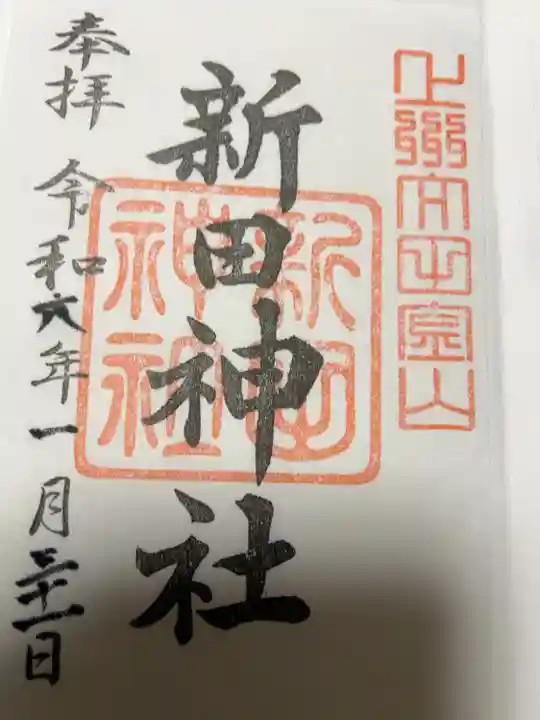 上州太田金山
新田神社
新田
神社
奉拝 令和六年一月三十一日